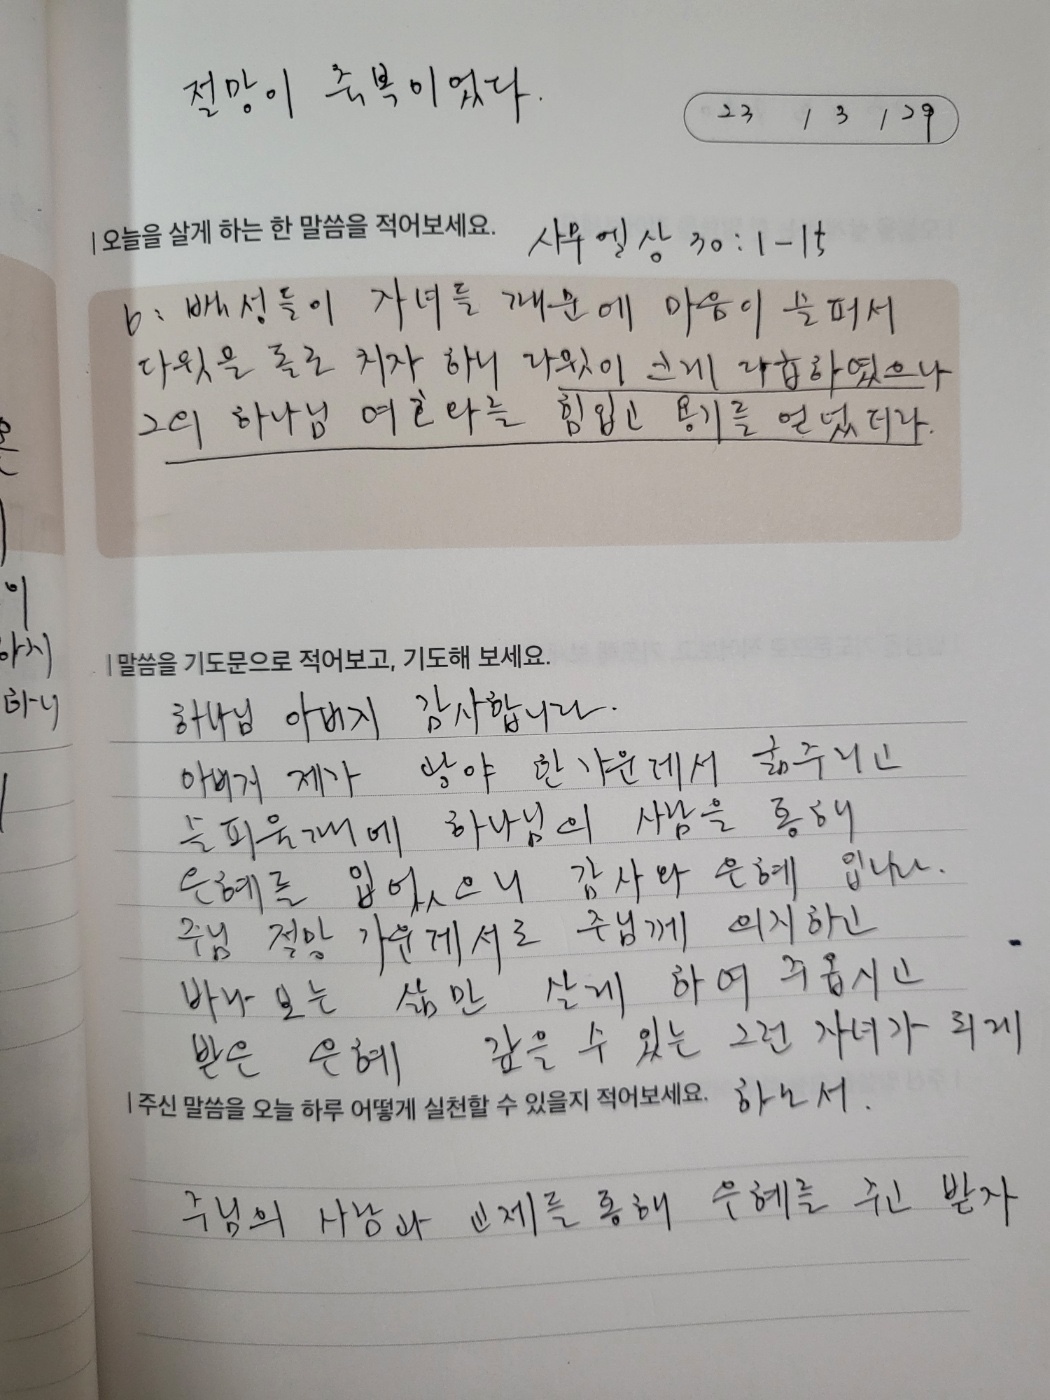 절망이 축복이었다.
23 / 3 / 29
오늘을 살게 하는 한 말씀을 적어보세요. 사무엘상 30:1-15
6: 백성들이 자녀들 때문에 마음이 슬퍼서
다윗을 돌로 치자 하니 다윗이 크게 다급하였으나
그의 하나님 여호와를 힘입고 용기를 얻었더라.
말씀을 기도문으로 적어보고, 기도해 보세요.
하나님 아버지 감사합니다.
아버지 제가 광야 한 가운데서 굶주리고
슬피울때에 하나님의 사람을 통해
은혜를 입었으니 감사와 은혜 입니다.
주님 절망 가운데서도 주님께 의지하고
바라보는 삶만 살게 하여 주옵시고
받은 은혜 갚을 수 있는 그런 자녀가 되게
하소서.
주신 말씀을 오늘 하루 어떻게 실천할 수 있을지 적어보세요.
주님의 사람과 교제를 통해 은혜를 주고 받자
이
하지
하니